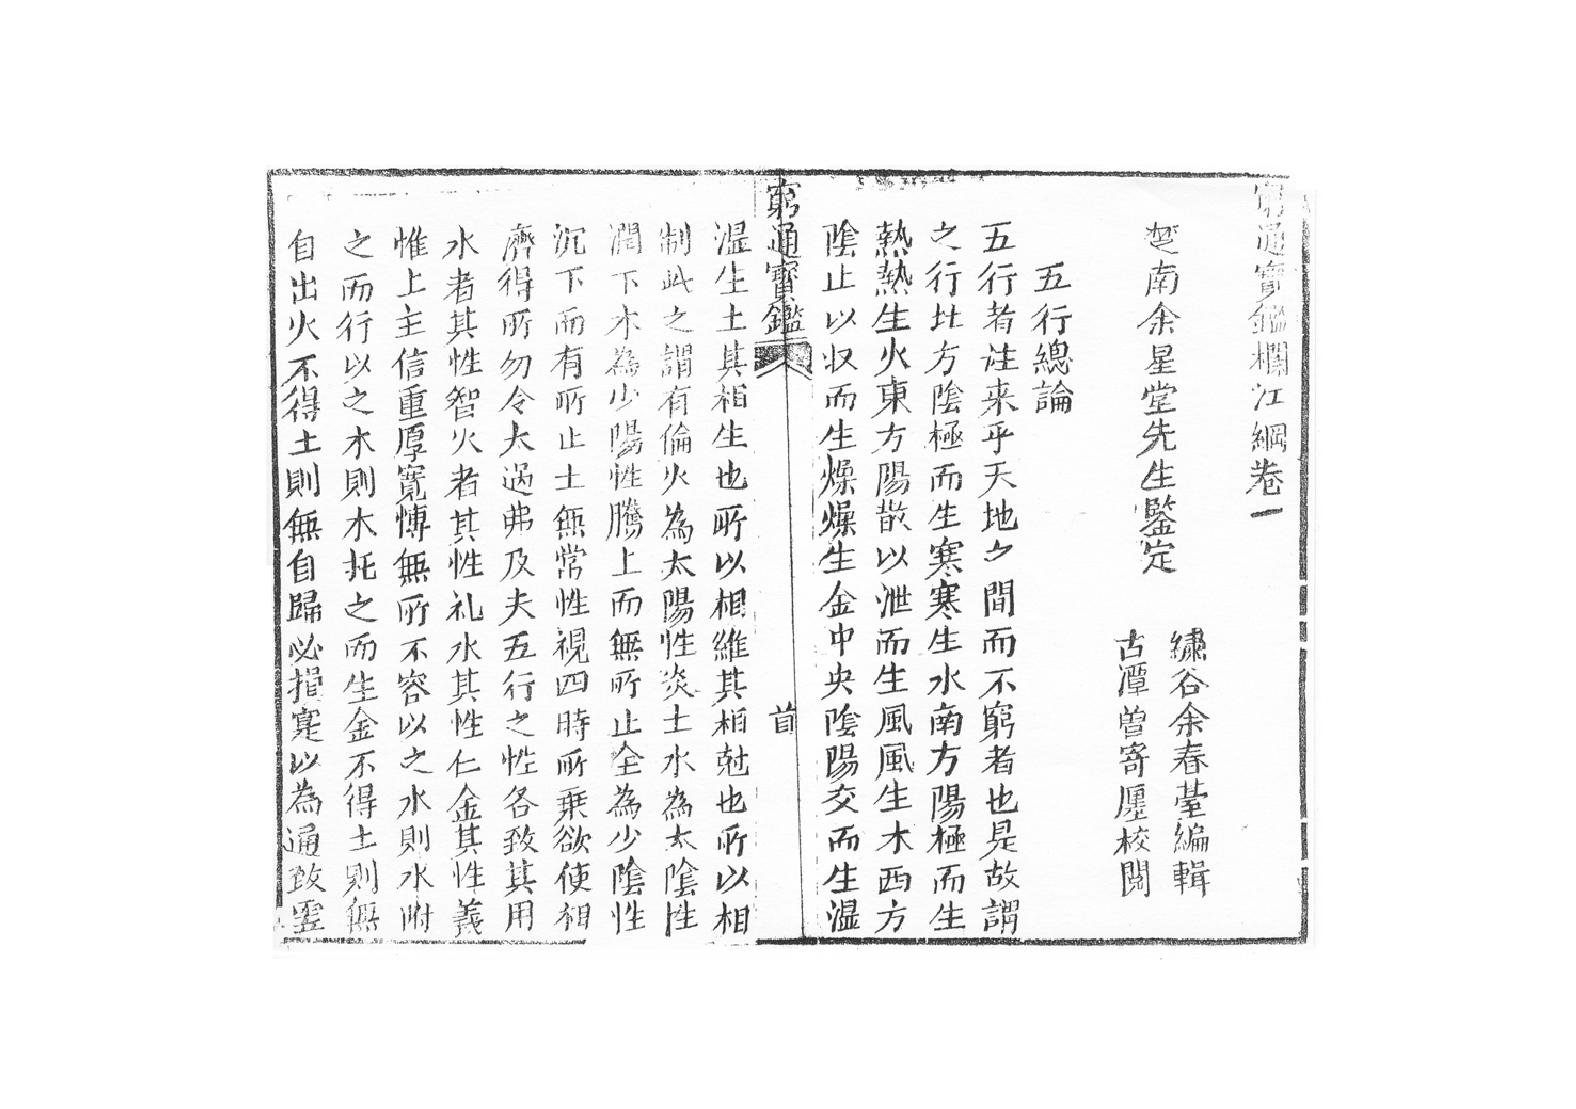 窮通寶鑑欄江綱卷一
楚南余星堂先生鑒定
繡谷余春臺編輯
古潭曾寄厘校閱
五行總論
五行者往来乎天地之間而不窮者也是故謂
之行北方陰極而生寒寒生水南方陽極而生
熱熱生火東方陽散以泄而生風風生木西方
陰止以收而生燥燥生金中央陰陽交而生溫
窮通寶鑑
首
溫生土其相生也所以相維其相尅也所以相
制此之謂有倫火為太陽性炎土水為太陰性
潤下木為少陽性騰上而無所止全為少陰性
沉下而有所止土無常性視四時所乗欲使相
濟得所勿令大過弗及夫五行之性各致其用
水者其性智火者其性礼水其性仁金其性義
惟上主信重厚寬慱無所不容以之水則水附
之而行以之木則木托之而生金不得土則無
自出火不得土則無自歸必損寔以為通致虛